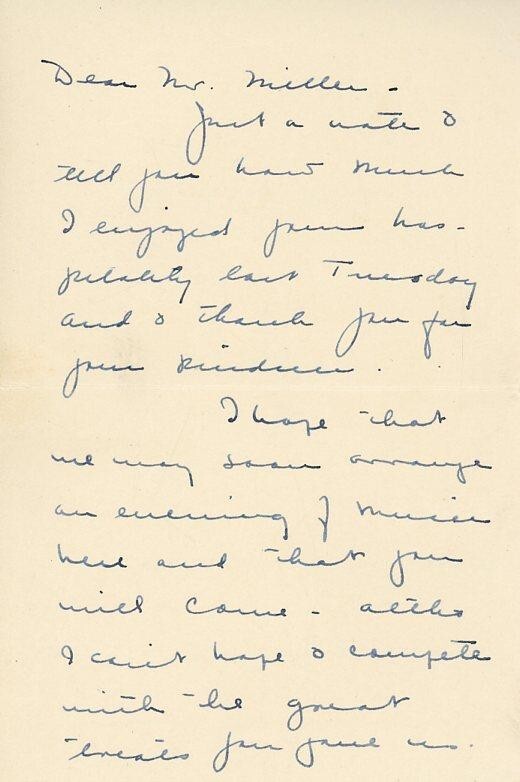 Dear Mr. Miller -
Just a note to
tell you how much
I enjoyed your hos-
pitality last Tuesday
and to thank you for
your kindness.
I hope that
we may soon arrange
an evening of music
here and that you
will come - altho
I can't hope to compete
with the great
treats you gave us.